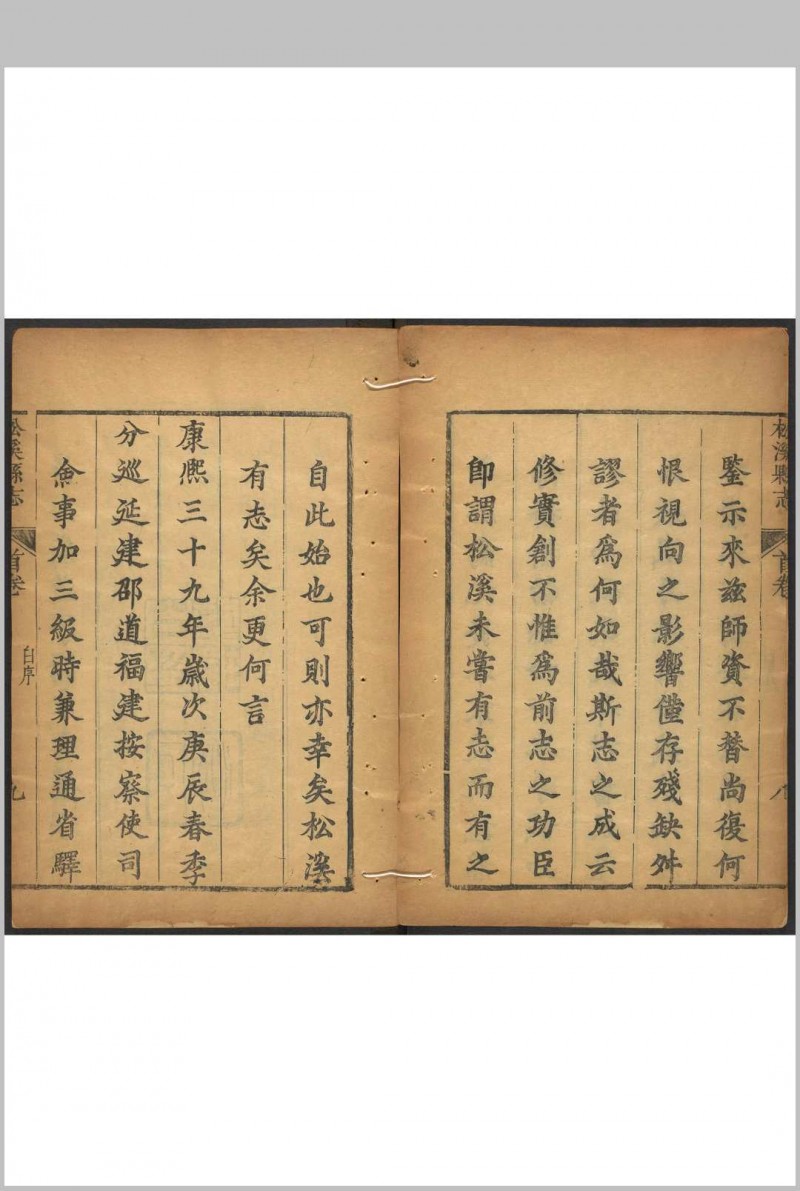 松溪縣志
首卷
八
鑒示來兹師資不朁尚復何
恨視向之影響僅存殘缺舛
謬者爲何如哉斯志之成云
修實創不惟爲前志之功臣
即謂松溪未嘗有志而有之
自此始也可則亦幸矣松溪
有志矣余更何言
康熈三十九年歲次庚辰春季
分巡延建邵道福建按察使司
僉事加三級時兼理通省驛
松溪縣志
首卷
自序
九